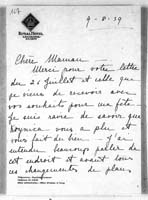 107
ROYAL HOTEL
9-8-39
Chère Maman
Merci pour votre lettre
du 26 juillet et celle que
je viens de recevoir avec
vos souhaits pour ma fête
Je suis ravie de savoir que
vous a plu et
vous fait du bien - J'ai
entendu beaucoup parler de
cet endroit et avant tous
ces changements de place